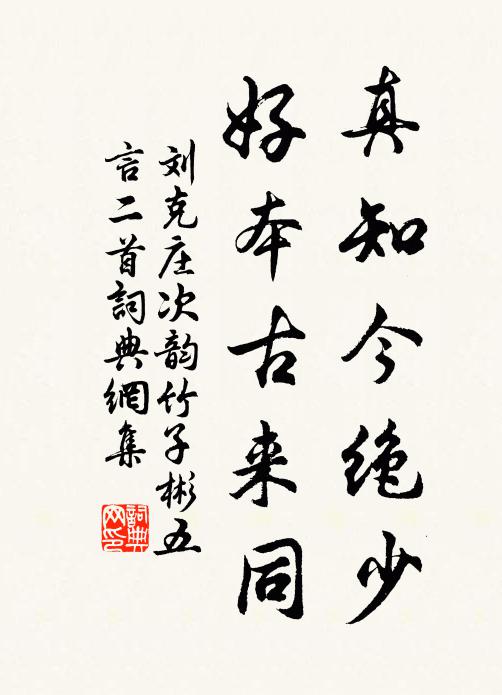 真知今绝少
好本古来同
刘克庄次韵竹子彬五
言二首詞典網集
詞典
网印